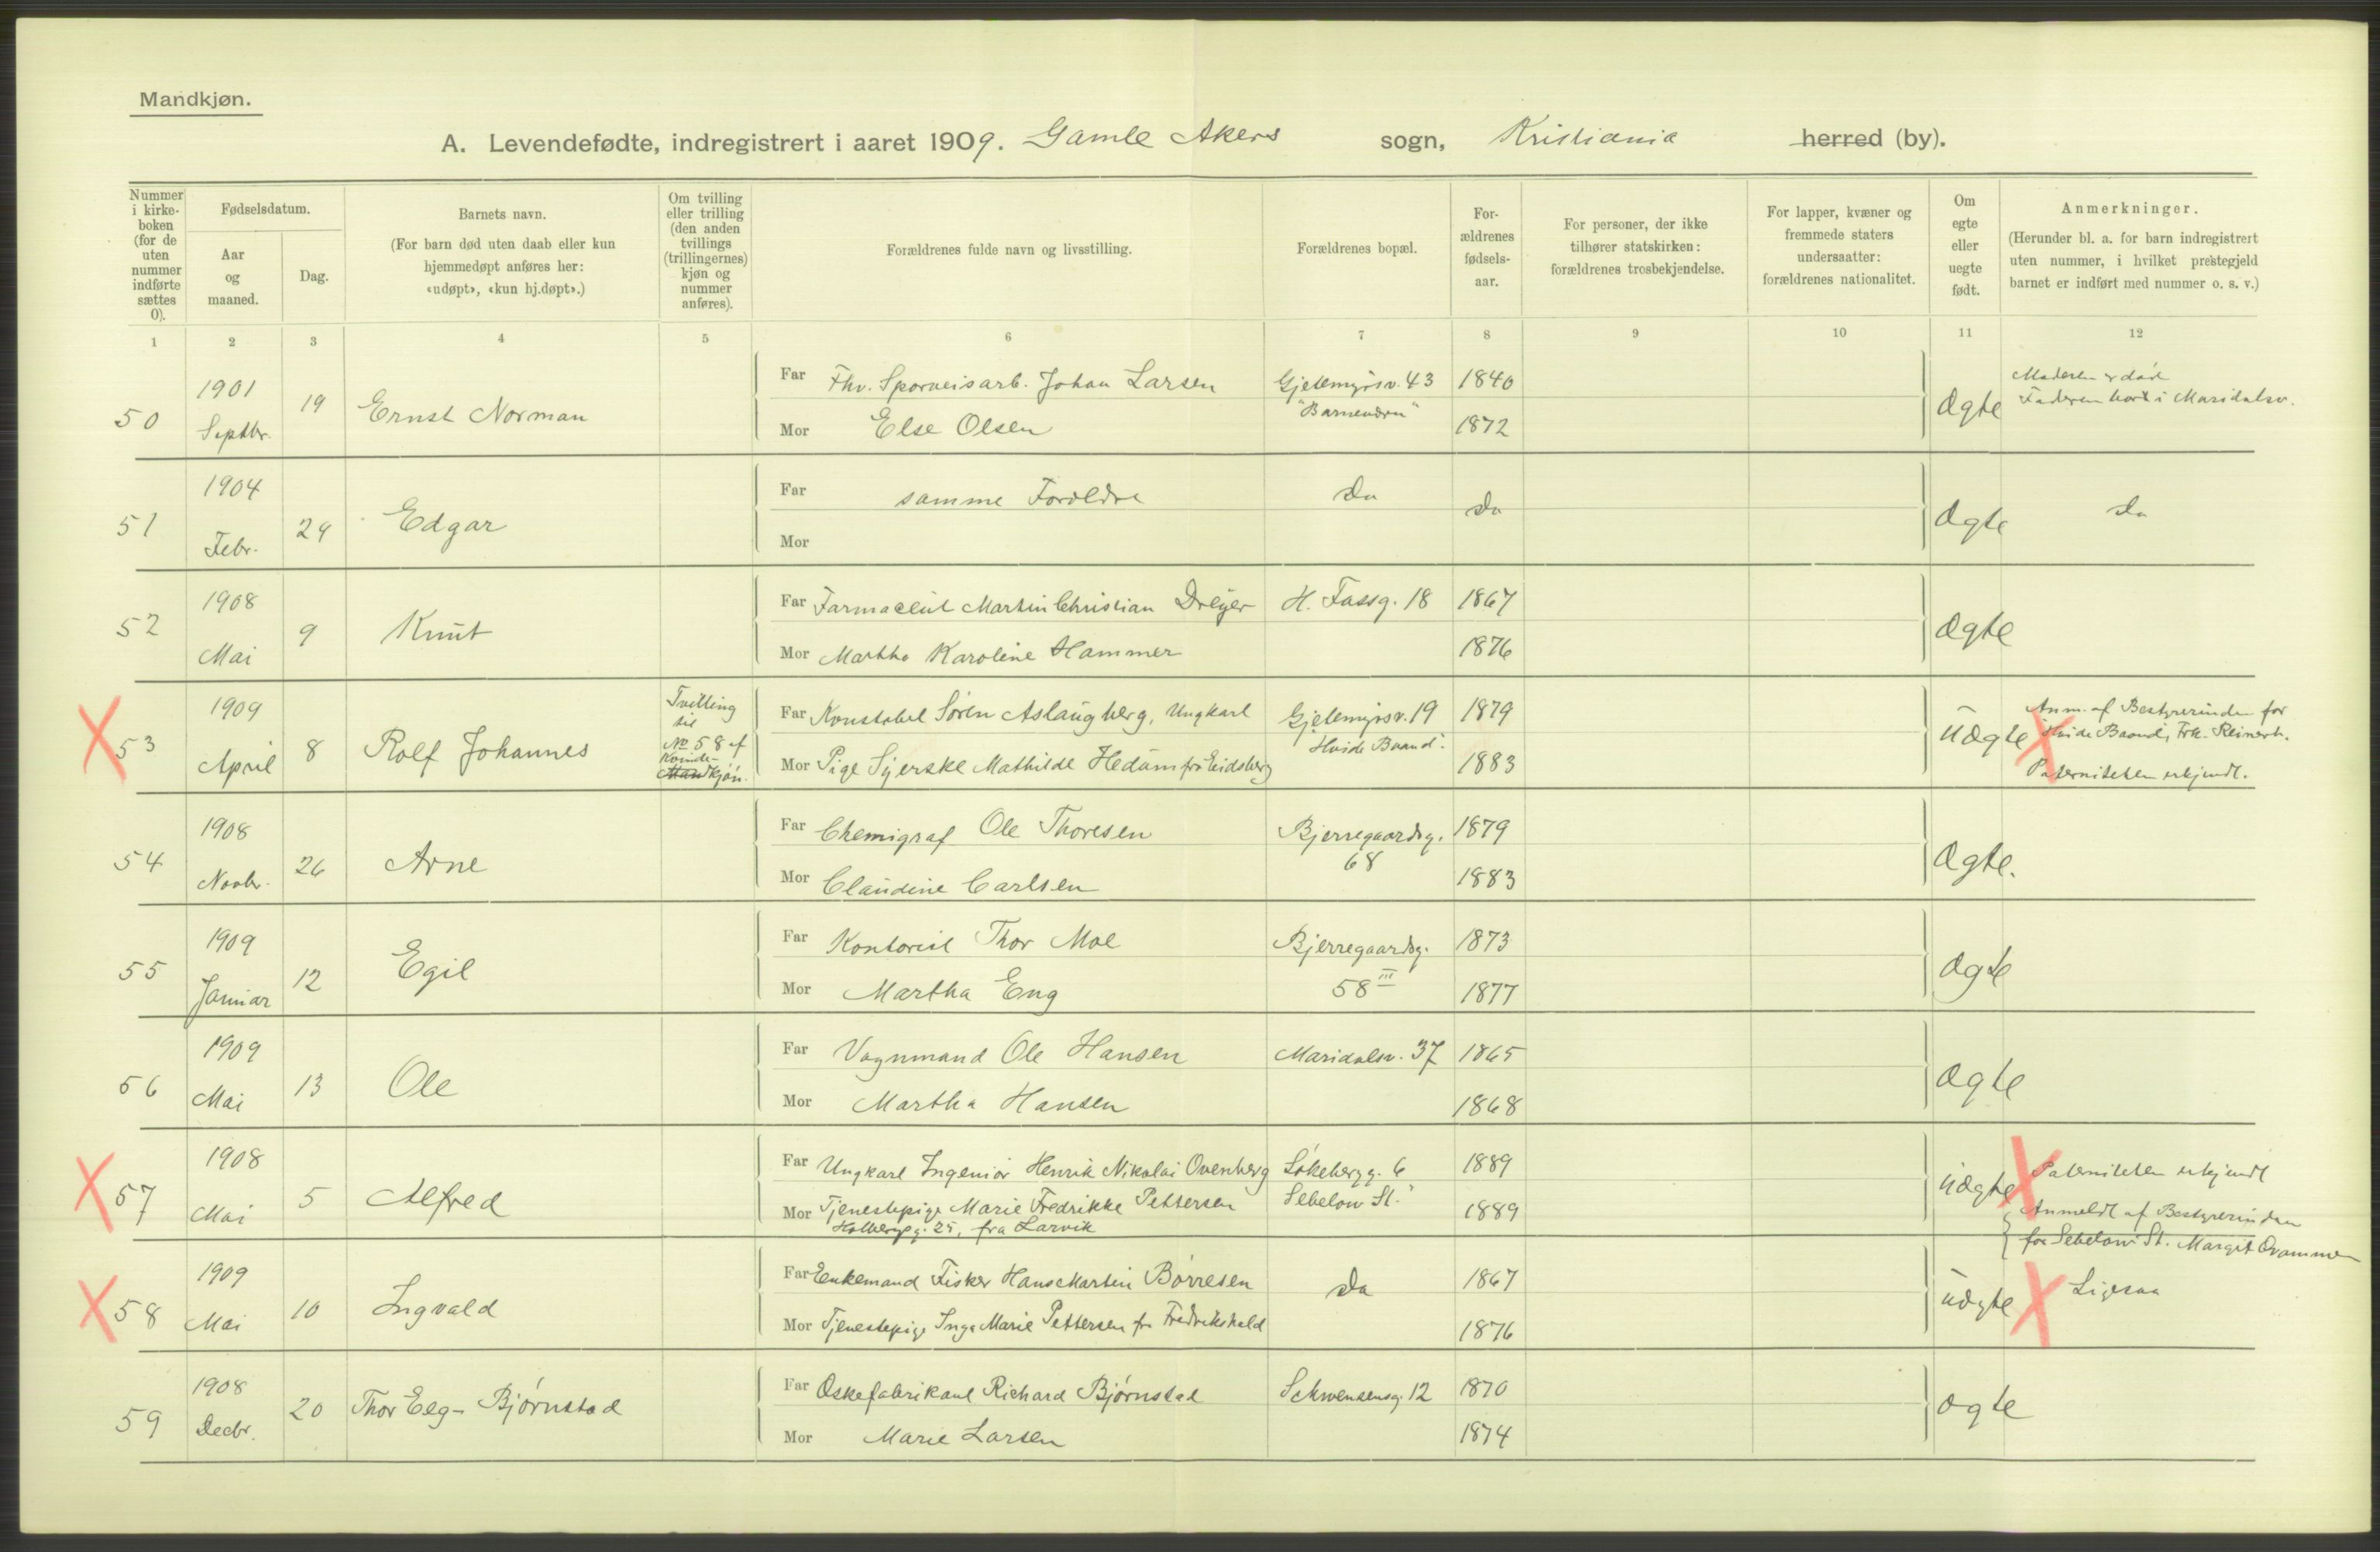 Mandkjøn.
A. Levendefødte, indregistrert i aaret 1909. Gamle Akers sogn, Kristiania herred (by).
Nummer i kirke-boken (for de uten nummer indførte sættes 0).
Fødselsdatum.
Aar og maaned.
Dag.
Barnets navn.
(For barn død uten daab eller kun hjemmedøpt anføres her: «udøpt», «kun hj.døpt».)
Om tvilling eller trilling (den anden tvillings (trillingernes) kjøn og nummer anføres).
Forældrenes fulde navn og livsstilling.
Forældrenes bopæl.
For-ældrenes fødsels-aar.
For personer, der ikke tilhører statskirken: forældrenes trosbekjendelse.
For lapper, kvæner og fremmede staters undersaatter: forældrenes nationalitet.
Om egte eller uegte født.
Anmerkninger.
(Herunder bl. a. for barn indregistrert uten nummer, i hvilket prestegjeld barnet er indført med nummer o. s. v.)
1 2 3 4 5 6 7 8 9 10 11 12
50 1901 Septbr. 19 Ernst Norman
Far Fhv. Sporveisarb. Johan Larsen Gjetemyrsv. 43 1840
"Barnevern"
Mor Else Olsen 1872
Ægte
Moderen er død
Faderen bor i Maridalsv.
51 1904 Febr. 29 Edgar
Far samme Foreldre Do Do
Mor
Ægte Do
52 1908 Mai 9 Knut
Far Farmaceut Martin Christian Dreyer H. Fassg. 18 1867
Mor Martha Karoline Hammer 1876
Ægte
X 53 1909 April 8 Rolf Johannes
Tvilling
til
No 58 af
Kvinde-
Mandkjøn.
Far Konstabel Søren Aslaugberg, Ungkarl Gjetemyrsv. 19 1879
"Hvide Baand".
Mor Pige Syerske Mathilde Hedum fra Eidsberg 1883
Uægte X
Anm. af Bestyrerinden for
"Hvide Baand", Frk. Reinert.
Paterniteten erkjendt.
54 1908 Novbr. 26 Arne
Far Chemigraf Ole Thoresen Bjerregaardsg. 1879
68
Mor Claudine Carlsen 1883
Ægte.
55 1909 Januar 12 Egil
Far Kontorist Thor Moe Bjerregaardsg. 1873
Mor Martha Eng 58 III 1877
Ægte
56 1909 Mai 13 Ole
Far Vognmand Ole Hansen Maridalsv. 37 1865
Mor Martha Hansen 1868
Ægte
X 57 1908 Mai 5 Alfred
Far Ungkarl Ingeniør Henrik Nikolai Ovenberg Løkebergg. 6 1889
Mor Tjenestepige Marie Fredrikke Pettersen Sebelow St." 1889
Holbergsg. 25, fra Larvik
Uægte X
Paterniteten erkjendt
Anmeldt af Bestyrerinden
for Sebelow St. Margit Ovammen
X 58 1909 Mai 10 Ingvald
Far Enkemand Fisker Hans Martin Børresen Do 1867
Mor Tjenestepige Inga Marie Pettersen fr Fredrikshald 1876
Uægte X Ligesaa
59 1908 Decbr. 20 Thor Eeg- Bjørnstad
Far Æskefabrikant Richard Bjørnstad Schwensensg. 12 1870
Mor Marie Larsen 1874
Ægte